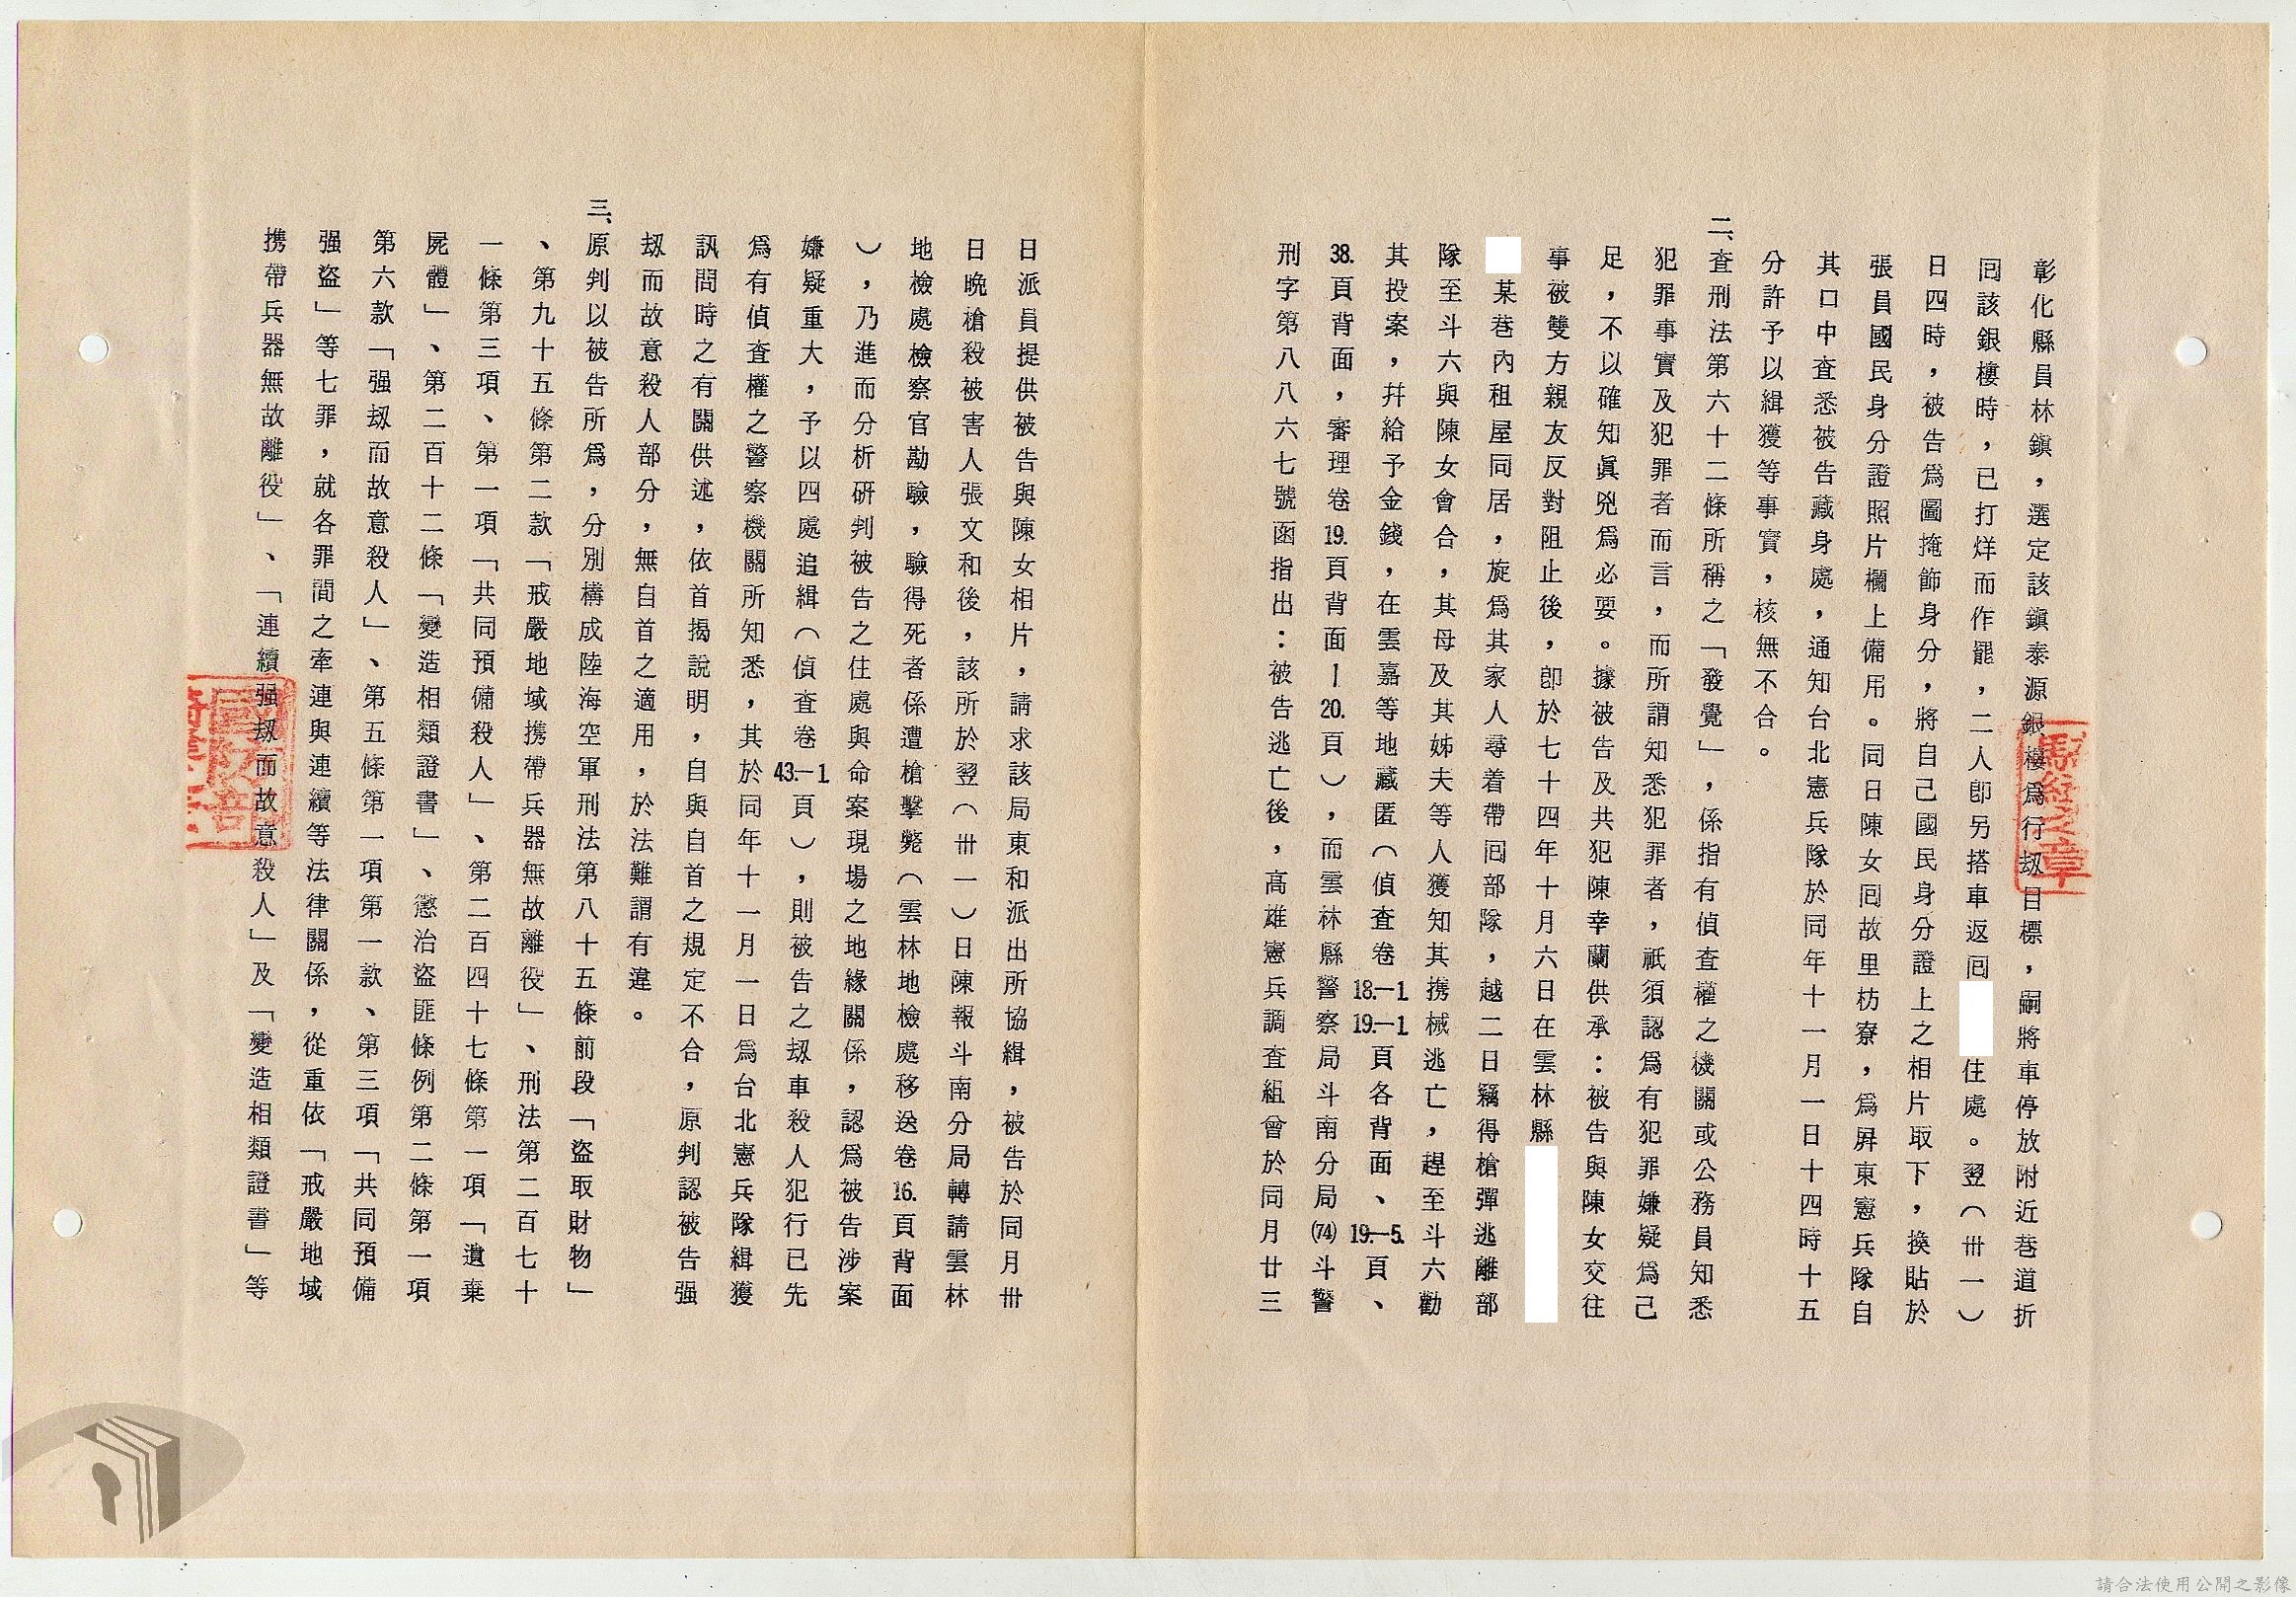 彰化縣員林鎭，選定該鎭泰源銀樓爲行刼目標，嗣將車停放附近巷道折
囘該銀樓時，已打烊而作罷，二人卽另搭車返囘住處。翌（卅一）
日四時，被告爲圖掩飾身分，將自己國民身分證上之相片取下，換貼於
張員國民身分證照片欄上備用。同日陳女囘故里枋寮，爲屛東憲兵隊自
其口中查悉被告藏身處，通知台北憲兵隊於同年十一月一日十四時十五
分許予以緝獲等事實，核無不合。
二、查刑法第六十二條所稱之「發覺」，係指有偵查權之機關或公務員知悉
犯罪事實及犯罪者而言，而所謂知悉犯罪者，祇須認爲有犯罪嫌疑爲已
足，不以確知眞兇爲必要。據被告及共犯陳幸蘭供承：被告與陳女交往
事被雙方親友反對阻止後，卽於七十四年十月六日在雲林縣
某巷內租屋同居，旋爲其家人尋着帶囘部隊，越二日竊得槍彈逃離部
隊至斗六與陳女會合，其母及其姊夫等人獲知其携械逃亡，趕至斗六勸
其投案，幷給予金錢，在雲嘉等地藏匿（偵查卷18.—1.19.—1.頁各背面、19.—5.頁、
38.頁背面，審理卷19.頁背面—20.頁），而雲林縣警察局斗南分局(74)斗警
刑字第八八六七號函指出：被告逃亡後，高雄憲兵調查組曾於同月廿三
日派員提供被告與陳女相片，請求該局東和派出所協緝，被告於同月卅
日晚槍殺被害人張文和後，該所於翌（卅一）日陳報斗南分局轉請雲林
地檢處檢察官勘驗，驗得死者係遭槍擊斃（雲林地檢處移送卷16.頁背面
），乃進而分析硏判被告之住處與命案現場之地緣關係，認爲被告涉案
嫌疑重大，予以四處追緝（偵查卷43.—1.頁），則被告之刼車殺人犯行已先
爲有偵查權之警察機關所知悉，其於同年十一月一日爲台北憲兵隊緝獲
訊問時之有關供述，依首揭說明，自與自首之規定不合，原判認被告强
刼而故意殺人部分，無自首之適用，於法難謂有違。
三、原判以被告所爲，分別構成陸海空軍刑法第八十五條前段「盜取財物」
、第九十五條第二款「戒嚴地域携帶兵器無故離役」、刑法第二百七十
一條第三項、第一項「共同預備殺人」、第二百四十七條第一項「遺棄
屍體」、第二百十二條「變造相類證書」、懲治盜匪條例第二條第一項
第六款「强刼而故意殺人」、第五條第一項第一款、第三項「共同預備
强盜」等七罪，就各罪間之牽連與連續等法律關係，從重依「戒嚴地域
携帶兵器無故離役」、「連續强刼而故意殺人」及「變造相類證書」等
請合法使用公開之影像